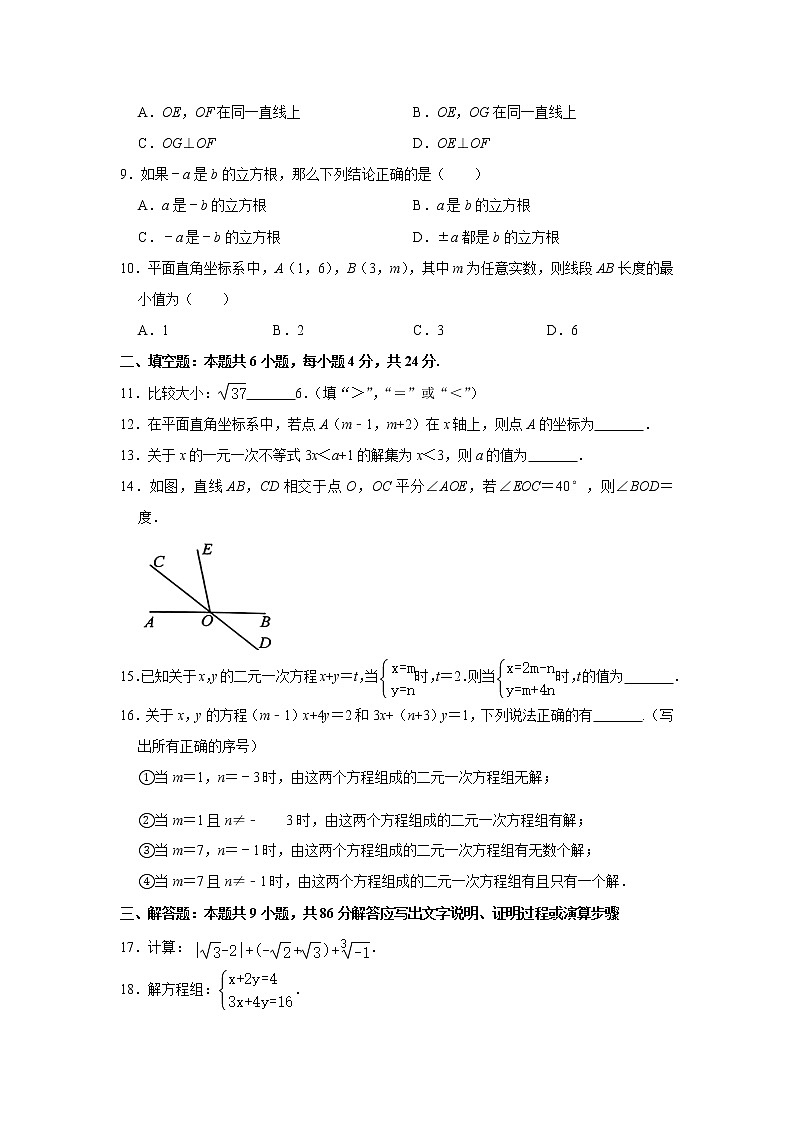 A．OE，OF在同一直线上 B．OE，OG在同一直线上
C．OG⊥OF D．OE⊥OF
9．如果﹣a是b的立方根，那么下列结论正确的是（  ）
A．a是﹣b的立方根 B．a是b的立方根
C．﹣a是﹣b的立方根 D．±a都是b的立方根
10．平面直角坐标系中，A（1，6），B（3，m），其中m为任意实数，则线段AB长度的最
小值为（  ）
A．1 B．2 C．3 D．6
二、填空题：本题共6小题，每小题4分，共24分.
11．比较大小：√37______6.（填“＞”，“＝”或“＜”）
12．在平面直角坐标系中，若点A（m﹣1，m+2）在x轴上，则点A的坐标为______．
13．关于x的一元一次不等式3x＜a+1的解集为x＜3，则a的值为______．
14．如图，直线AB，CD相交于点O，OC平分∠AOE，若∠EOC＝40°，则∠BOD＝
度．
E
C
A O B
D
15.已知关于x,y的二元一次方程x+y＝t,当{x=m y=n时,t＝2.则当{x=2m-n y=m+4n时,t的值为______．
16．关于x，y的方程（m﹣1）x+4y＝2和3x+（n+3）y＝1，下列说法正确的有______.（写
出所有正确的序号）
①当m＝1，n＝﹣3时，由这两个方程组成的二元一次方程组无解；
②当m＝1且n≠﹣ 3时，由这两个方程组成的二元一次方程组有解；
③当m＝7，n＝﹣1时，由这两个方程组成的二元一次方程组有无数个解；
④当m＝7且n≠﹣1时，由这两个方程组成的二元一次方程组有且只有一个解．
三、解答题：本题共9小题，共86分解答应写出文字说明、证明过程或演算步骤
17．计算：|√3-2|+(-√2+√3)+∛-1．
18．解方程组：{x+2y=4 3x+4y=16．